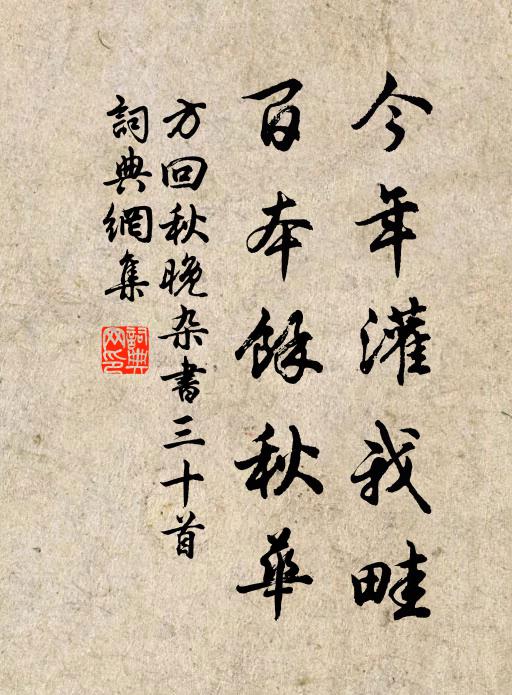 今年灌我畦
百本餘秋華
方回秋晚杂書三十首
詞典網集
詞典网印